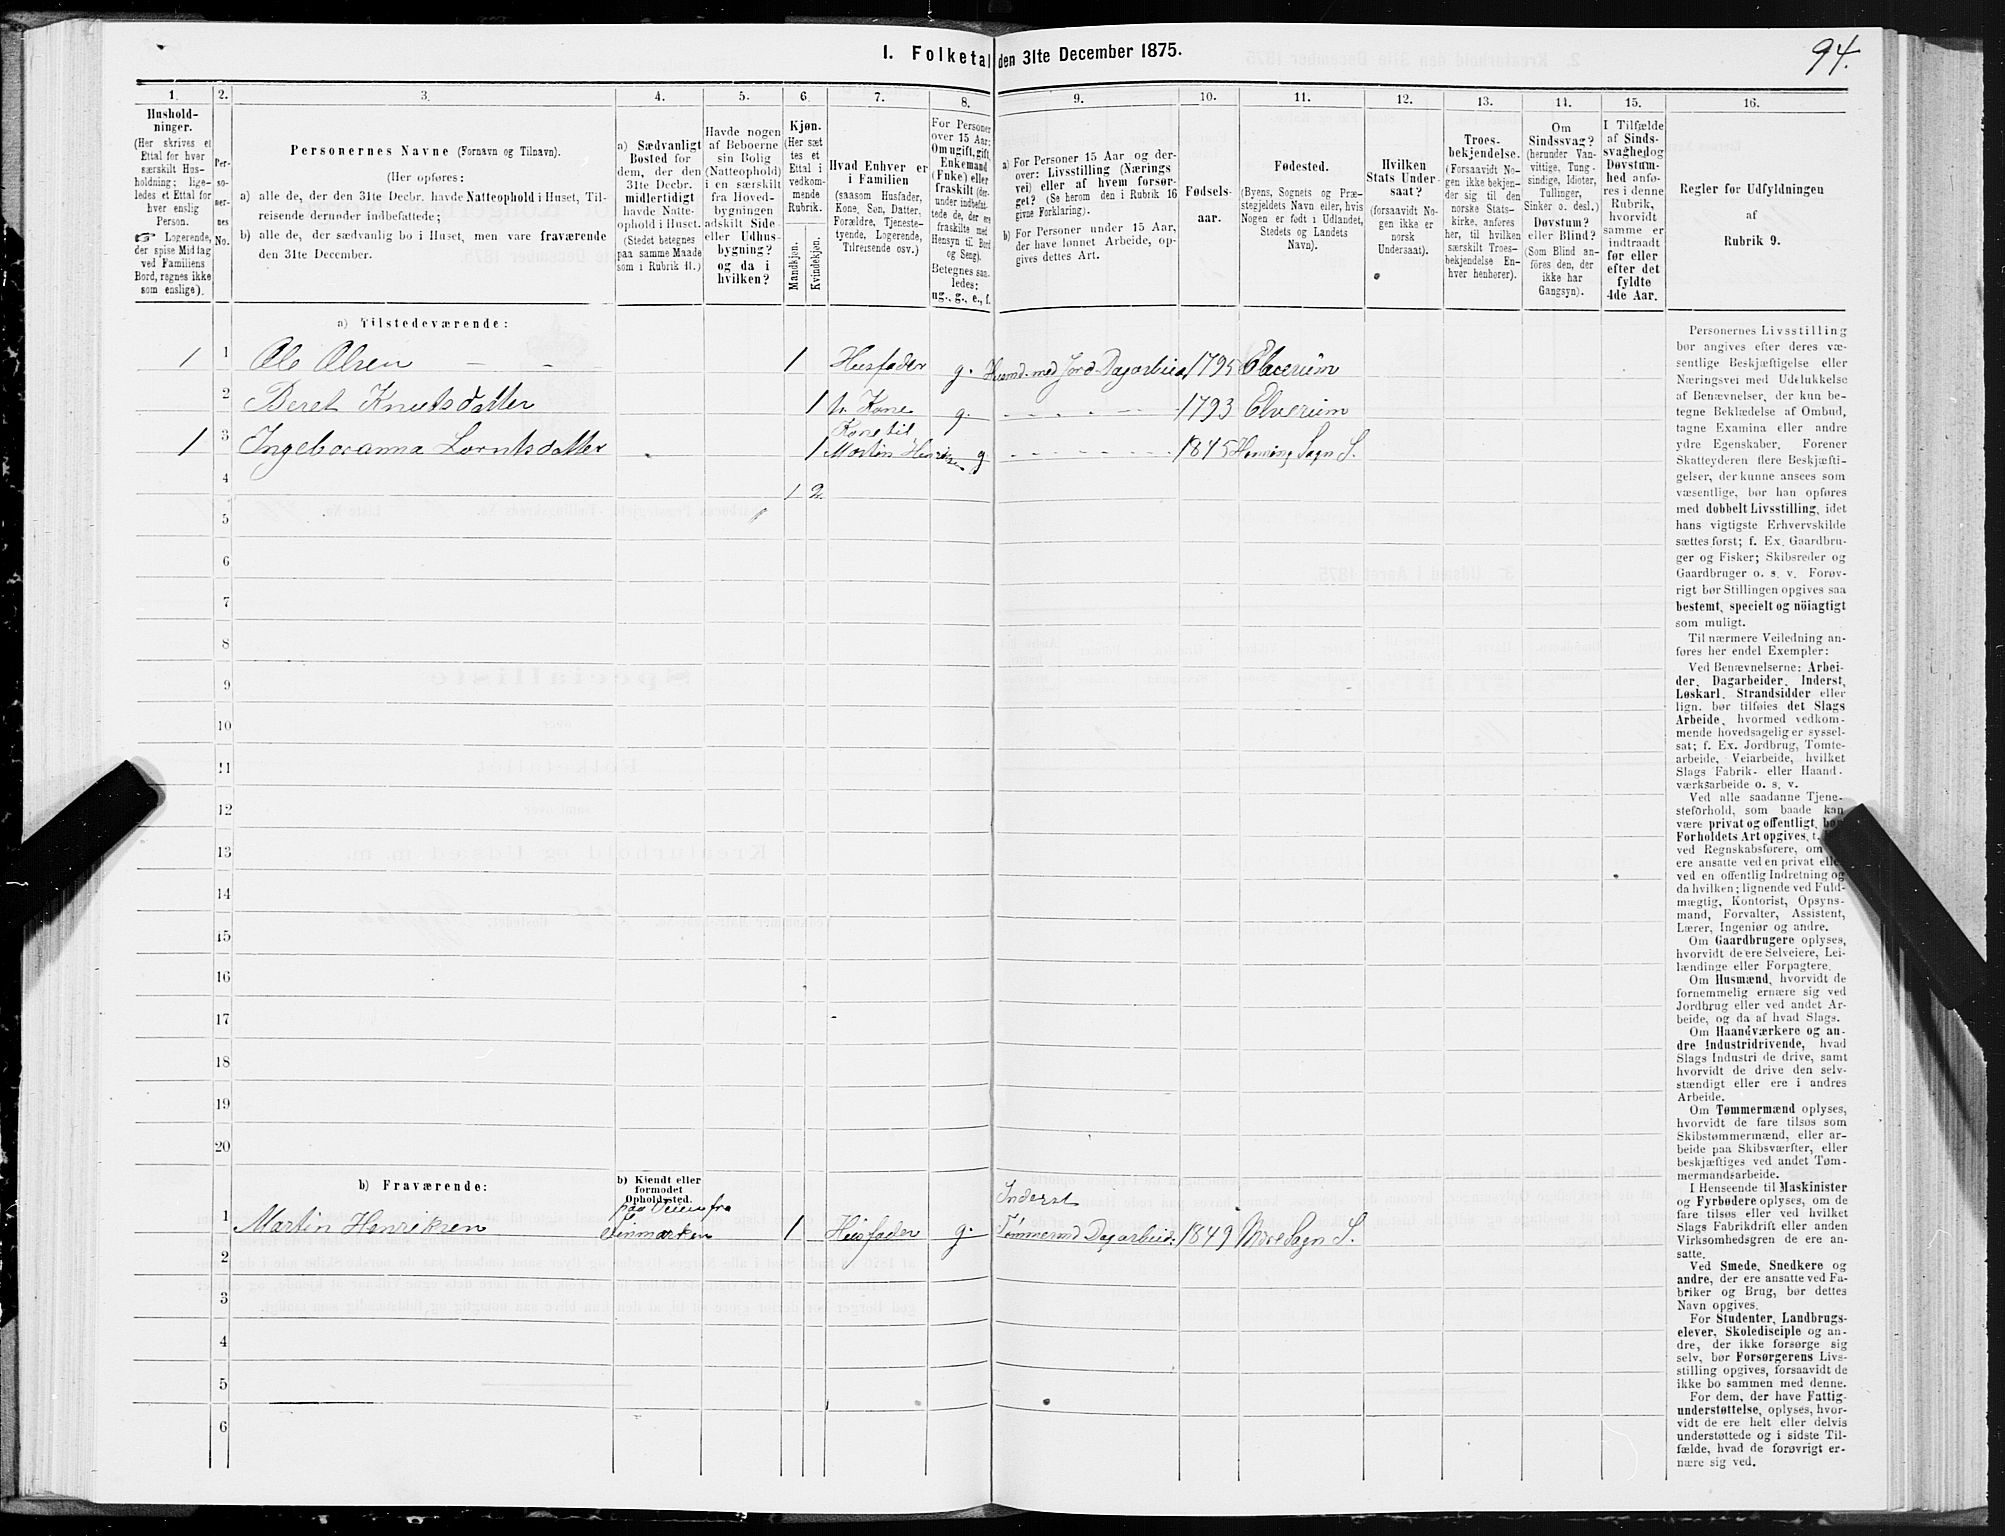 94.
I. Folketal den 31te December 1875.
1.
Hushold-
ninger.
(Her skrives et
Ettal for hver
særskilt Hus-
holdning; lige-
ledes et Ettal for
hver enslig
Person.
☞ Logerende,
der spise Middag
ved Familiens
Bord, regnes ikke
som enslige).
2.
Per-
so-
ner-
nes
No.
3.
Personernes Navne (Fornavn og Tilnavn).
(Her opføres:
a) alle de, der den 31te Decbr. havde Natteophold i Huset, Til-
reisende derunder indbefattede;
b) alle de, der sædvanlig bo i Huset, men vare fraværende
den 31te December.
4.
a) Sædvanligt
Bosted for
dem, der den
31te Decbr.
midlertidigt
havde Natte-
ophold i Huset.
(Stedet betegnes
paa samme Maade
som i Rubrik 11.)
5.
Havde nogen
af Beboerne
sin Bolig
(Natteophold)
i en særskilt
fra Hoved-
bygningen
adskilt Side-
eller Udhus-
bygning?
og da i
hvilken?
6.
Kjøn.
(Her sæt-
tes et
Ettal i
vedkom-
mende
Rubrik.
Mandkjøn.
Kvindekjøn.
7.
Hvad Enhver er
i Familien
(saasom Husfader,
Kone, Søn, Datter,
Forældre, Tjeneste-
tyende, Logerende,
Tilreisende osv.)
8.
For Personer
over 15 Aar:
Om ugift, gift,
Enkemand
(Enke) eller
fraskilt (der-
under indbefat-
tede de, der ere
fraskilte med
Hensyn til Bord
og Seng).
Betegnes saa-
ledes:
ug., g., e., f.
9.
a) For Personer 15 Aar og der-
over: Livsstilling (Nærings-
vei) eller af hvem forsør-
get? (Se herom den i Rubrik 16
givne Forklaring).
b) For Personer under 15 Aar,
der have lønnet Arbeide, op-
gives dettes Art.
10.
Fødsels-
aar.
11.
Fødested.
(Byens, Sognets og Præ-
stegjeldets Navn eller, hvis
Nogen er født i Udlandet,
Stedets og Landets
Navn).
12.
Hvilken
Stats Under-
saat?
(forsaavidt No-
gen ikke er
norsk
Undersaat).
13.
Troes-
bekjendelse.
(Forsaavidt No-
gen ikke bekjen-
der sig til den
norske Stats-
kirke, anføres
her, til hvilken
særskilt Troes-
bekjendelse En-
hver henhører).
14.
Om
Sindssvag?
(herunder Van-
vittige, Tung-
sindige, Idioter,
Tullinger,
Sinker o. desl.)
Døvstum?
eller Blind?
(Som Blind an-
føres den, der
ikke har
Gangsyn).
15.
I Tilfælde
af Sinds-
svaghed og
Døvstum-
hed anfø-
res i denne
Rubrik,
hvorvidt
samme er
indtraadt
før eller
efter det
fyldte
4de Aar.
16.
Regler for Udfyldningen
af
Rubrik 9.
a) Tilstedeværende:
1 1 Ole Olsen - - 1 Husfader g. Husmd. med Jord Dagarbeid. 1795 Elverum
2 Beret Knutsdatter 1 h. Kone g. - - - - - 1793 Elverum
Kone til
1 3 Ingeboranna Lorntsdatter 1 Martin Henriksen g - - - - - 1845 Henning Sogn S.
4 1 2
5
6
7
8
9
10
11
12
13
14
15
16
17
18
19
20
b) Fraværende:
b) Kjendt eller
formodet
Opholdssted.
paa Veien fra Inderst
1 Martin Henriksen Finmarken 1 Husfader g. Tømmermd Dagarbeid. 1849 S.
2
3
4
5
6
Personernes Livsstilling
bør angives efter deres væ-
sentlige Beskjæftigelse eller
Næringsvei med Udelukkelse
af Benævnelser, der kun be-
tegne Beklædelse af Ombud,
tagne Examina eller andre
ydre Egenskaber. Forener
Skatteyderen flere Beskjæfti-
gelser, der kunne ansees som
væsentlige, bør han opføres
med dobbelt Livsstilling, idet
hans vigtigste Erhvervskilde
sættes først; f. Ex. Gaardbru-
ger og Fisker; Skibsreder og
Gaardbruger o. s. v. Forøv-
rigt bør Stillingen opgives saa
bestemt, specielt og nöiagtigt
som muligt.
Til nærmere Veiledning an-
føres her endel Exempler:
Ved Benævnelserne: Arbei-
der, Dagarbeider, Inderst,
Løskarl, Strandsidder eller
lign. bør tilføies det Slags
Arbeide, hvormed vedkom-
mende hovedsagelig er syssel-
sat; f. Ex. Jordbrug, Tomte-
arbeide, Veiarbeide, hvilket
Slags Fabrik- eller Haand-
værksarbeide o. s. v.
Ved alle saadanne Tjene-
steforhold, som baade kan
være privat og offentligt, bør
Forholdets Art opgives,
ved Regnskabsførere, om
ere ansatte ved en privat eller
ved en offentlig Indretning og
da hvilken; lignende ved Fuld-
mægtig, Kontorist, Opsyns-
mand, Forvalter, Assistent,
Lærer, Ingeniør og andre.
Om Gaardbrugere oplyses,
hvorvidt de ere Selveiere, Lei-
lændinge eller Forpagtere.
Om Husmænd, hvorvidt de
fornemmelig ernære sig ved
Jordbrug eller ved andet Ar-
beide, og da af hvad Slags.
Om Haandværkere og an-
dre Industridrivende, hvad
Slags Industri de drive, samt
hvorvidt de drive den selv-
stændigt eller ere i andres
Arbeide.
Om Tømmermænd oplyses,
hvorvidt de fare tilsøs som
Skibstømmermænd, eller ar-
beide paa Skibsværfter, eller
beskjæftiges ved andet Tøm-
mermandsarbeide.
I Henseende til Maskinister
og Fyrbødere oplyses, om de
fare tilsøs eller ved hvilket
Slags Fabrikdrift eller anden
Virksomhedsgren de ere an-
satte.
Ved Smede, Snedkere og
andre, der ere ansatte ved Fa-
briker og Brug, bør dettes
Navn opgives.
For Studenter, Landbrugs-
elever, Skoledisciple og an-
dre, der ikke forsørge sig
selv, bør Forsørgerens Livs-
stilling opgives, forsaavidt de
ikke bo sammen med denne.
For dem, der have Fattig-
understøttelse, oplyses, hvor-
vidt de ere helt eller delvis
understøttede og i sidste Til-
fælde, hvad de forøvrigt er-
nære sig ved.